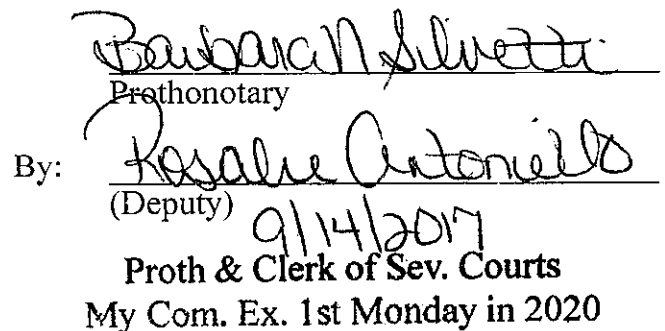 Barbara N Silvetti
Prothonotary
By: Rosalie Antoniello
(Deputy)
9/14/2017
Proth & Clerk of Sev. Courts
My Com. Ex. 1st Monday in 2020